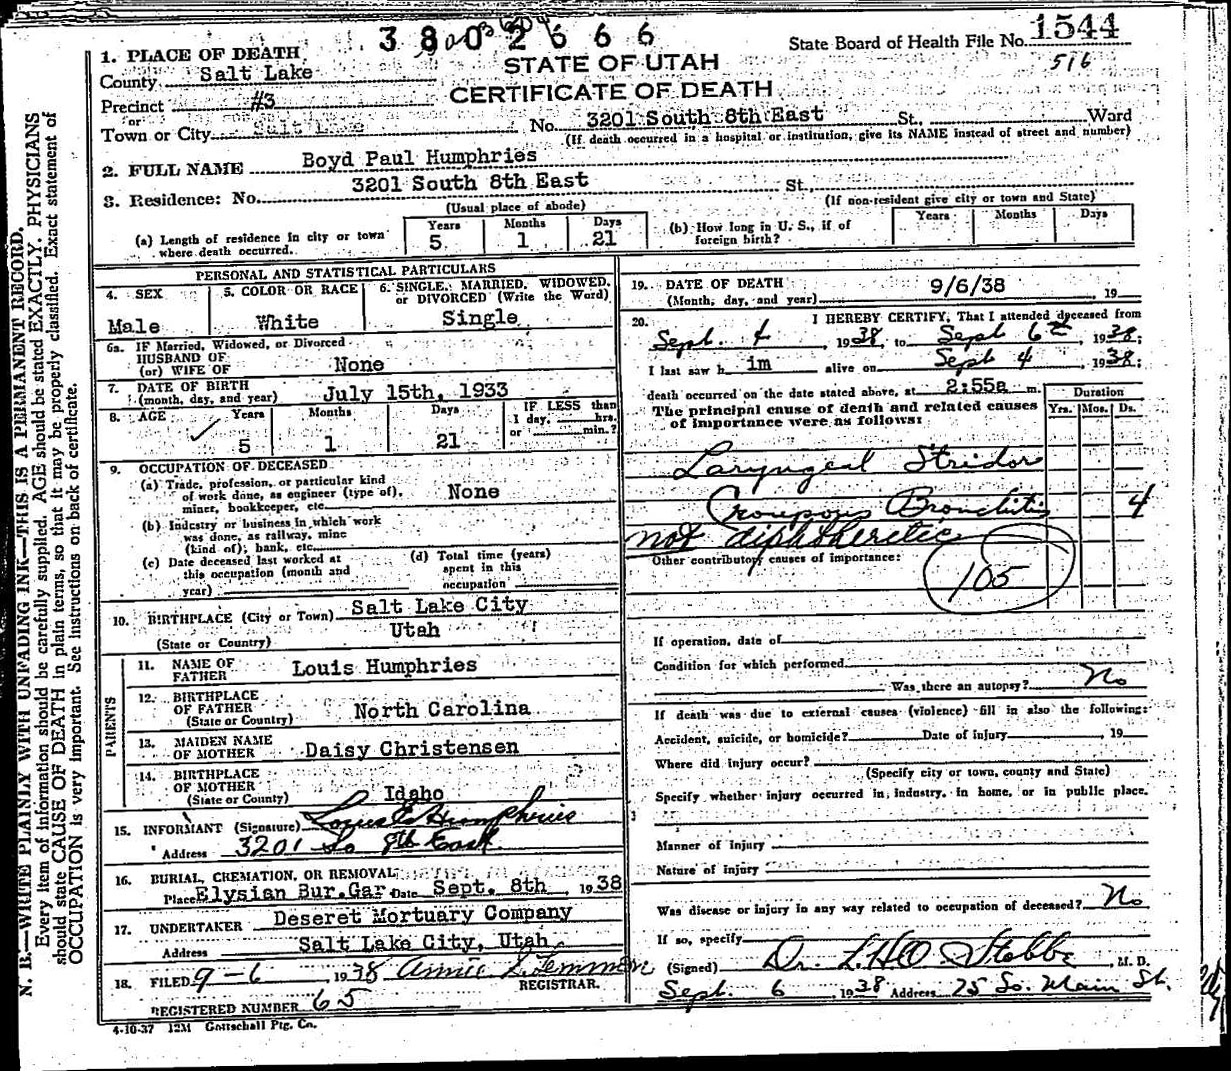 3802666
State Board of Health File No. 1544
516
STATE OF UTAH
CERTIFICATE OF DEATH
1. PLACE OF DEATH
County Salt Lake
Precinct #3
or
Town or City Salt Lake No. 3201 South 8th East St. Ward
(If death occurred in a hospital or institution, give its NAME instead of street and number)
2. FULL NAME Boyd Paul Humphries
3. Residence: No. 3201 South 8th East St.
(Usual place of abode) (If non-resident give city or town and State)
(a) Length of residence in city or town where death occurred. Years 5 Months 1 Days 21
(b) How long in U. S., if of foreign birth? Years Months Days
PERSONAL AND STATISTICAL PARTICULARS
4. SEX Male
5. COLOR OR RACE White
6. SINGLE, MARRIED, WIDOWED, or DIVORCED (Write the Word) Single
6a. IF Married, Widowed, or Divorced
HUSBAND OF
(or) WIFE OF None
7. DATE OF BIRTH
(month, day, and year) July 15th, 1933
8. AGE Years 5 Months 1 Days 21 IF LESS than 1 day, hrs. or min.?
9. OCCUPATION OF DECEASED
(a) Trade, profession, or particular kind
of work done, as engineer (type of), None
miner, bookkeeper, etc.
(b) Industry or business in which work
was done, as railway, mine
(kind of); bank, etc.
(c) Date deceased last worked at
this occupation (month and
year)
(d) Total time (years)
spent in this
occupation
10. BIRTHPLACE (City or Town) Salt Lake City
(State or Country) Utah
PARENTS
11. NAME OF FATHER Louis Humphries
12. BIRTHPLACE OF FATHER
(State or Country) North Carolina
13. MAIDEN NAME OF MOTHER Daisy Christensen
14. BIRTHPLACE OF MOTHER
(State or County) Idaho
15. INFORMANT (Signature) Louis E Humphries
Address 3201 So 8th East
16. BURIAL, CREMATION, OR REMOVAL
Place Elysian Bur.Gar Date Sept. 8th, 1938
17. UNDERTAKER Deseret Mortuary Company
Address Salt Lake City, Utah
18. FILED 9-6 1938 Annie S. Lemmon
REGISTRAR.
REGISTERED NUMBER 65
4-10-37 12M Gottschall Ptg. Co.
19. DATE OF DEATH
(Month, day, and year) 9/6/38, 19
20. I HEREBY CERTIFY, That I attended deceased from
Sept. 4, 1938, to Sept 6th, 1938;
I last saw h im alive on Sept 4, 1938;
death occurred on the date stated above, at 2:55a m.
The principal cause of death and related causes
of importance were as follows:
Duration
Yrs. Mos. Ds.
Laryngeal Stridor
Croupous Bronchitis 4
not diphtheretic
Other contributory causes of importance:
105
If operation, date of
Condition for which performed
Was there an autopsy? No
If death was due to external causes (violence) fill in also the following:
Accident, suicide, or homicide? Date of injury, 19
Where did injury occur?
(Specify city or town, county and State)
Specify whether injury occurred in industry, in home, or in public place.
Manner of injury
Nature of injury
Was disease or injury in any way related to occupation of deceased? No
If so, specify
(Signed) Dr. Stobbe, M. D.
Sept. 6 1938 Address 25 So. Main St.
N. B.—WRITE PLAINLY WITH UNFADING INK—THIS IS A PERMANENT RECORD.
Every item of information should be carefully supplied. AGE should be stated EXACTLY. PHYSICIANS
should state CAUSE OF DEATH in plain terms, so that it may be properly classified. Exact statement of
OCCUPATION is very important. See instructions on back of certificate.